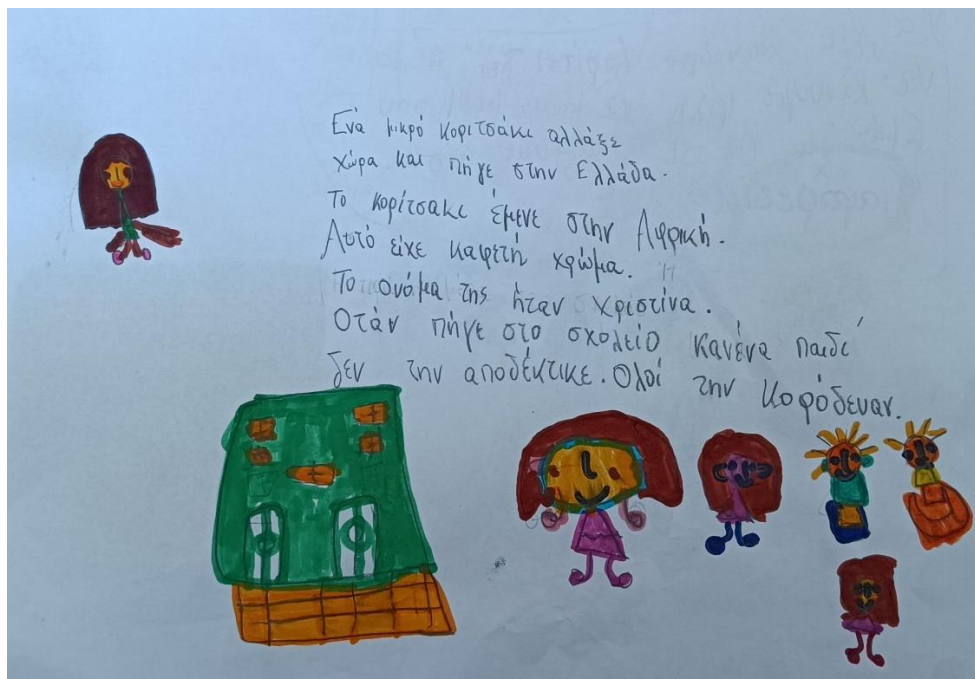 Ενά μικρό κοριτσάκι αλλάξε
χώρα και πήγε στην Ελλάδα.
Το κορίτσακι έμενε στην Αφρική.
Αυτό είχε καφετή χρώμα.
Το ονάμα της ήταν Χριστίνα.
Οτάν πήγε στο σχολείο κανένα παιδί
δεν την αποδέκτικε. Ολοί την κοφόδευαν.